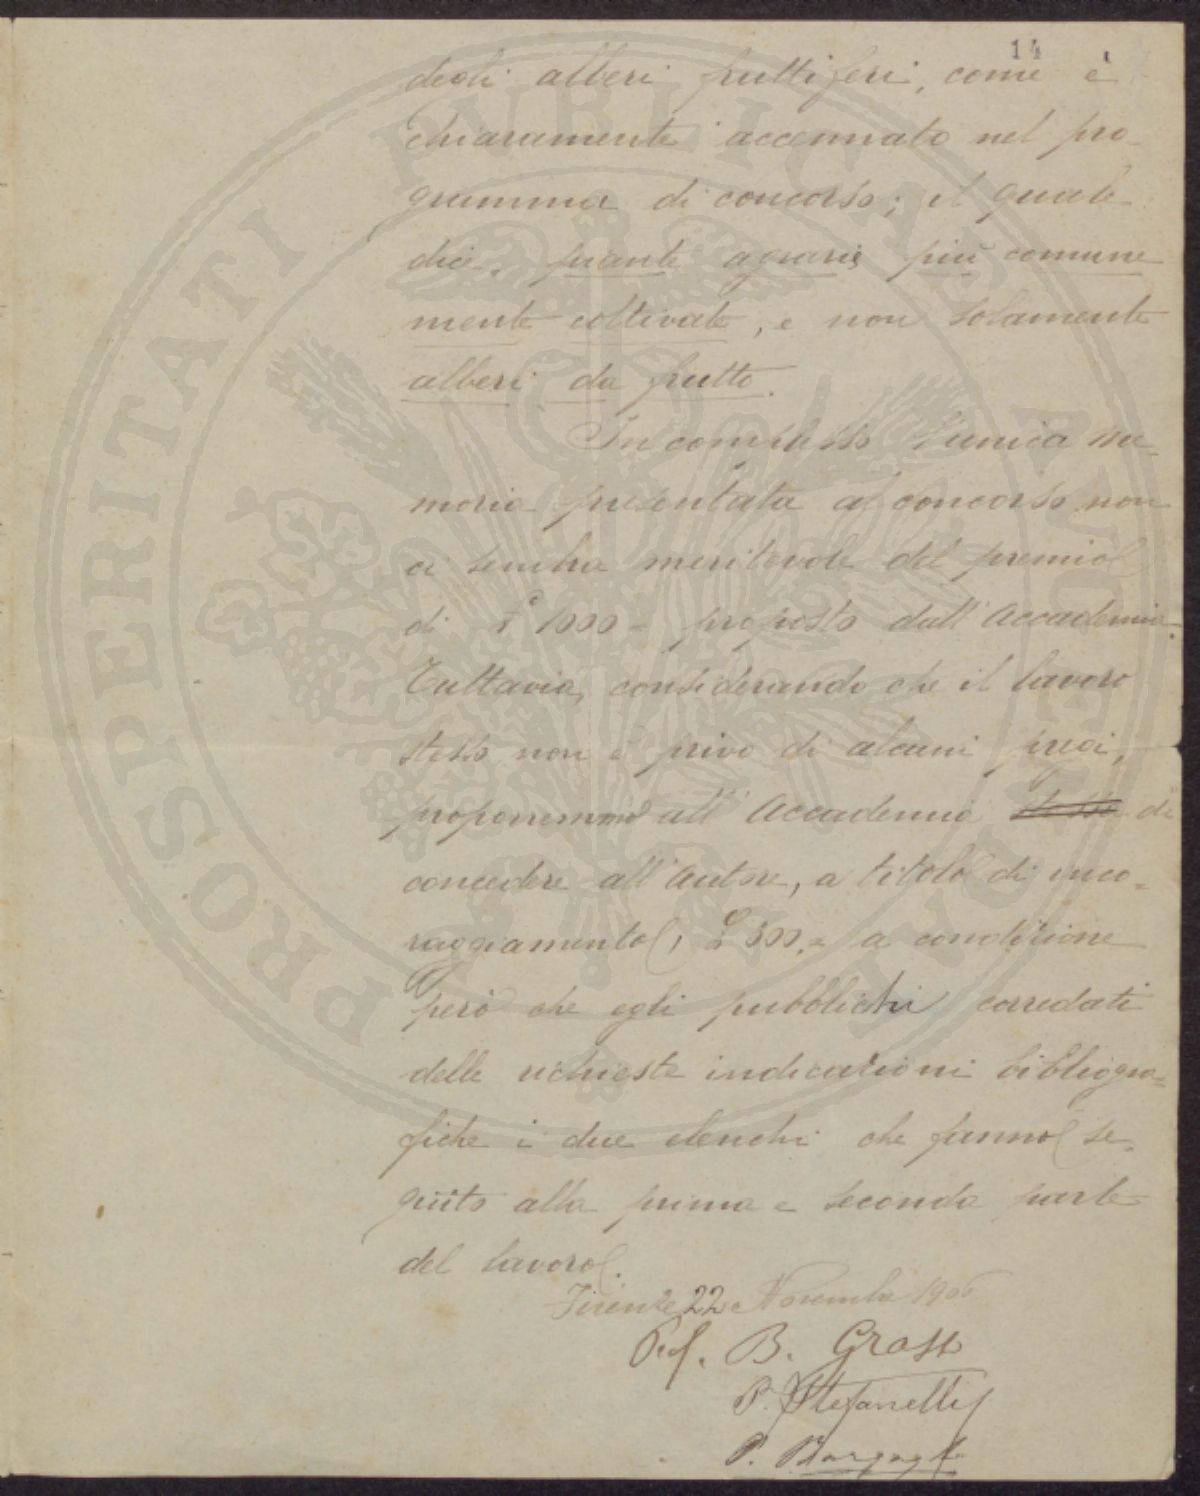 14
degli alberi fruttiferi, come è
chiaramente accennato nel pro-
gramma di concorso; il quale
dice, piante agrarie più comune
mente coltivate, e non solamente
alberi da frutto.
In complesso l'unica me-
moria presentata al concorso non
ci sembra meritevole del premio
di £ 1000 = proposto dall'Accademia.
Tuttavia, considerando che il lavoro
stesso non è privo di alcuni pregi,
proporremmo all'Accademia stessa di
concedere all'autore, a titolo di inco-
raggiamento, £ 300.= a condizione
però che egli pubblichi corredati
delle richieste indicazioni bibliogra-
fiche i due elenchi che fanno se-
guito alla prima e seconda parte
del lavoro.
Firenze 22 Novembre 1906
Prof. B. Grassi
P. Stefanelli
P. Bargagli
PROSPERITATI PUBLICAE AUGENDAE